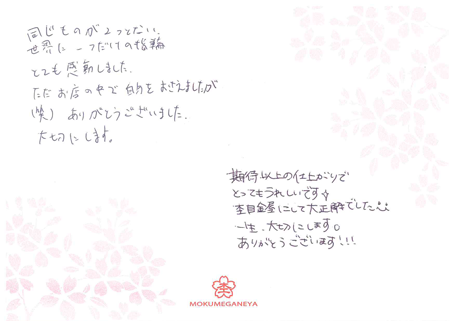 同じものが2つとない、
世界に一つだけの指輪
とても感動しました。
ただお店の中で
おさえましたが
(笑) ありがとうございました。
大切にします。
期待以上の仕上がりで
とってもうれしいです
杢目金屋にして大正解でした
一生、大切にします。
ありがとうございます!!!
MOKUMEGANEYA